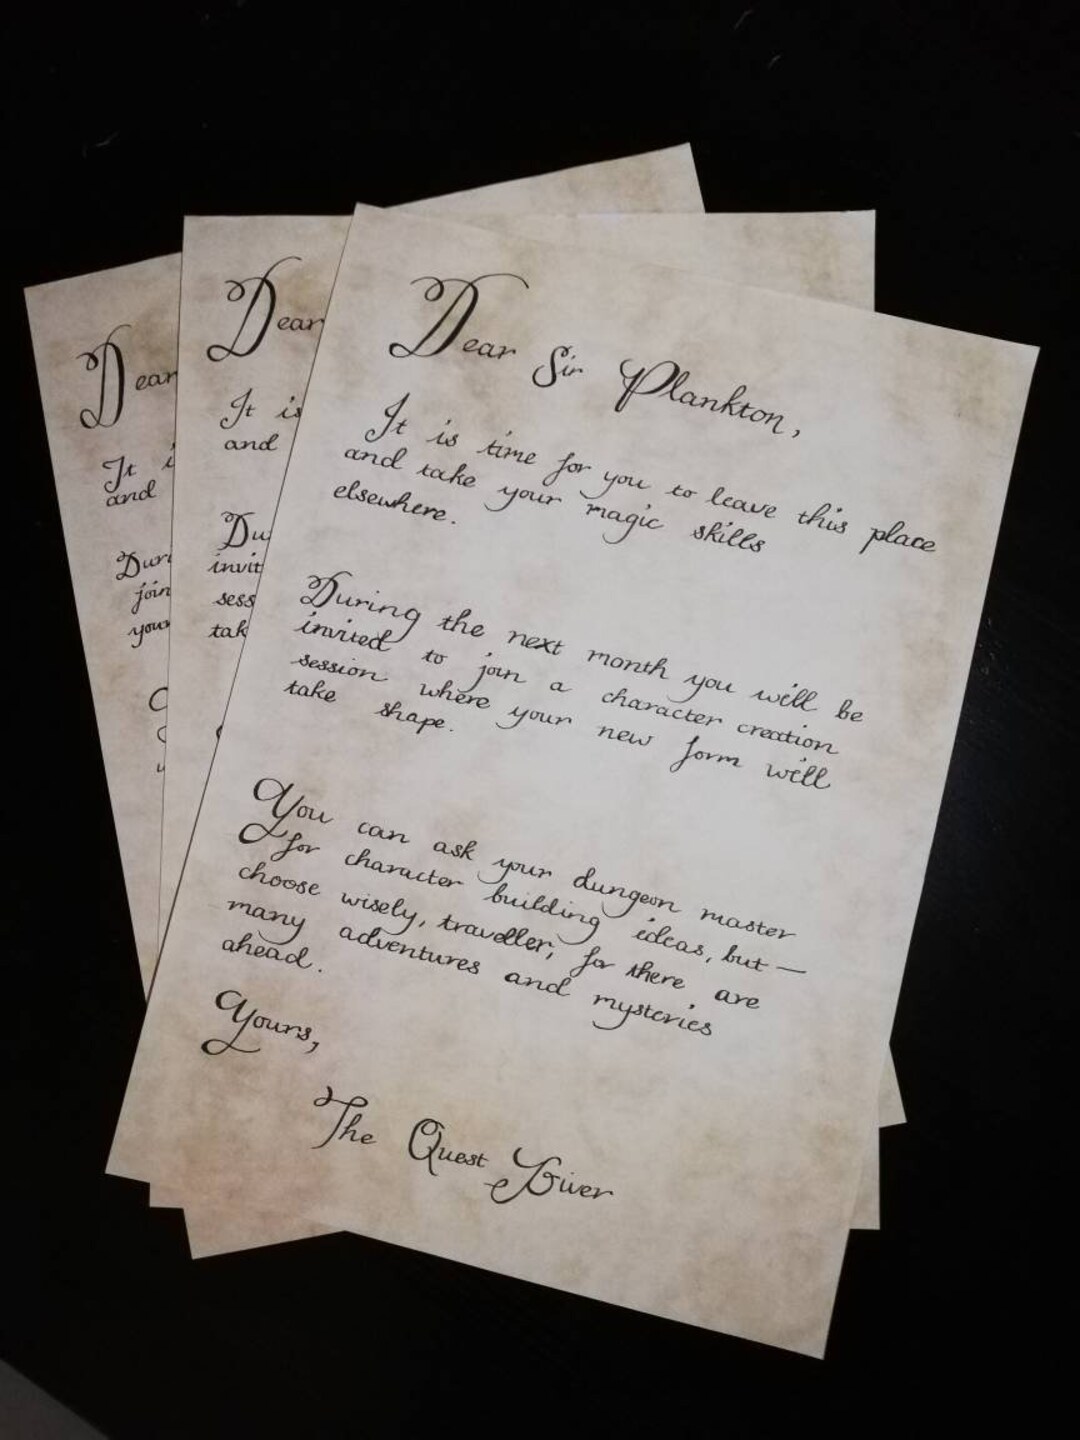 Dear
It i
and
Duri
join
your
Dear
It is
and
Du
invit
sess
tak
Dear Sir Plankton,
It is time for you to leave this place
and take your magic skills
elsewhere.
During the next month you will be
invited to join a character creation
session where your new form will
take shape.
You can ask your dungeon master
for character building ideas, but —
choose wisely, traveller, for there are
many adventures and mysteries
ahead.
Yours,
The Quest Giver